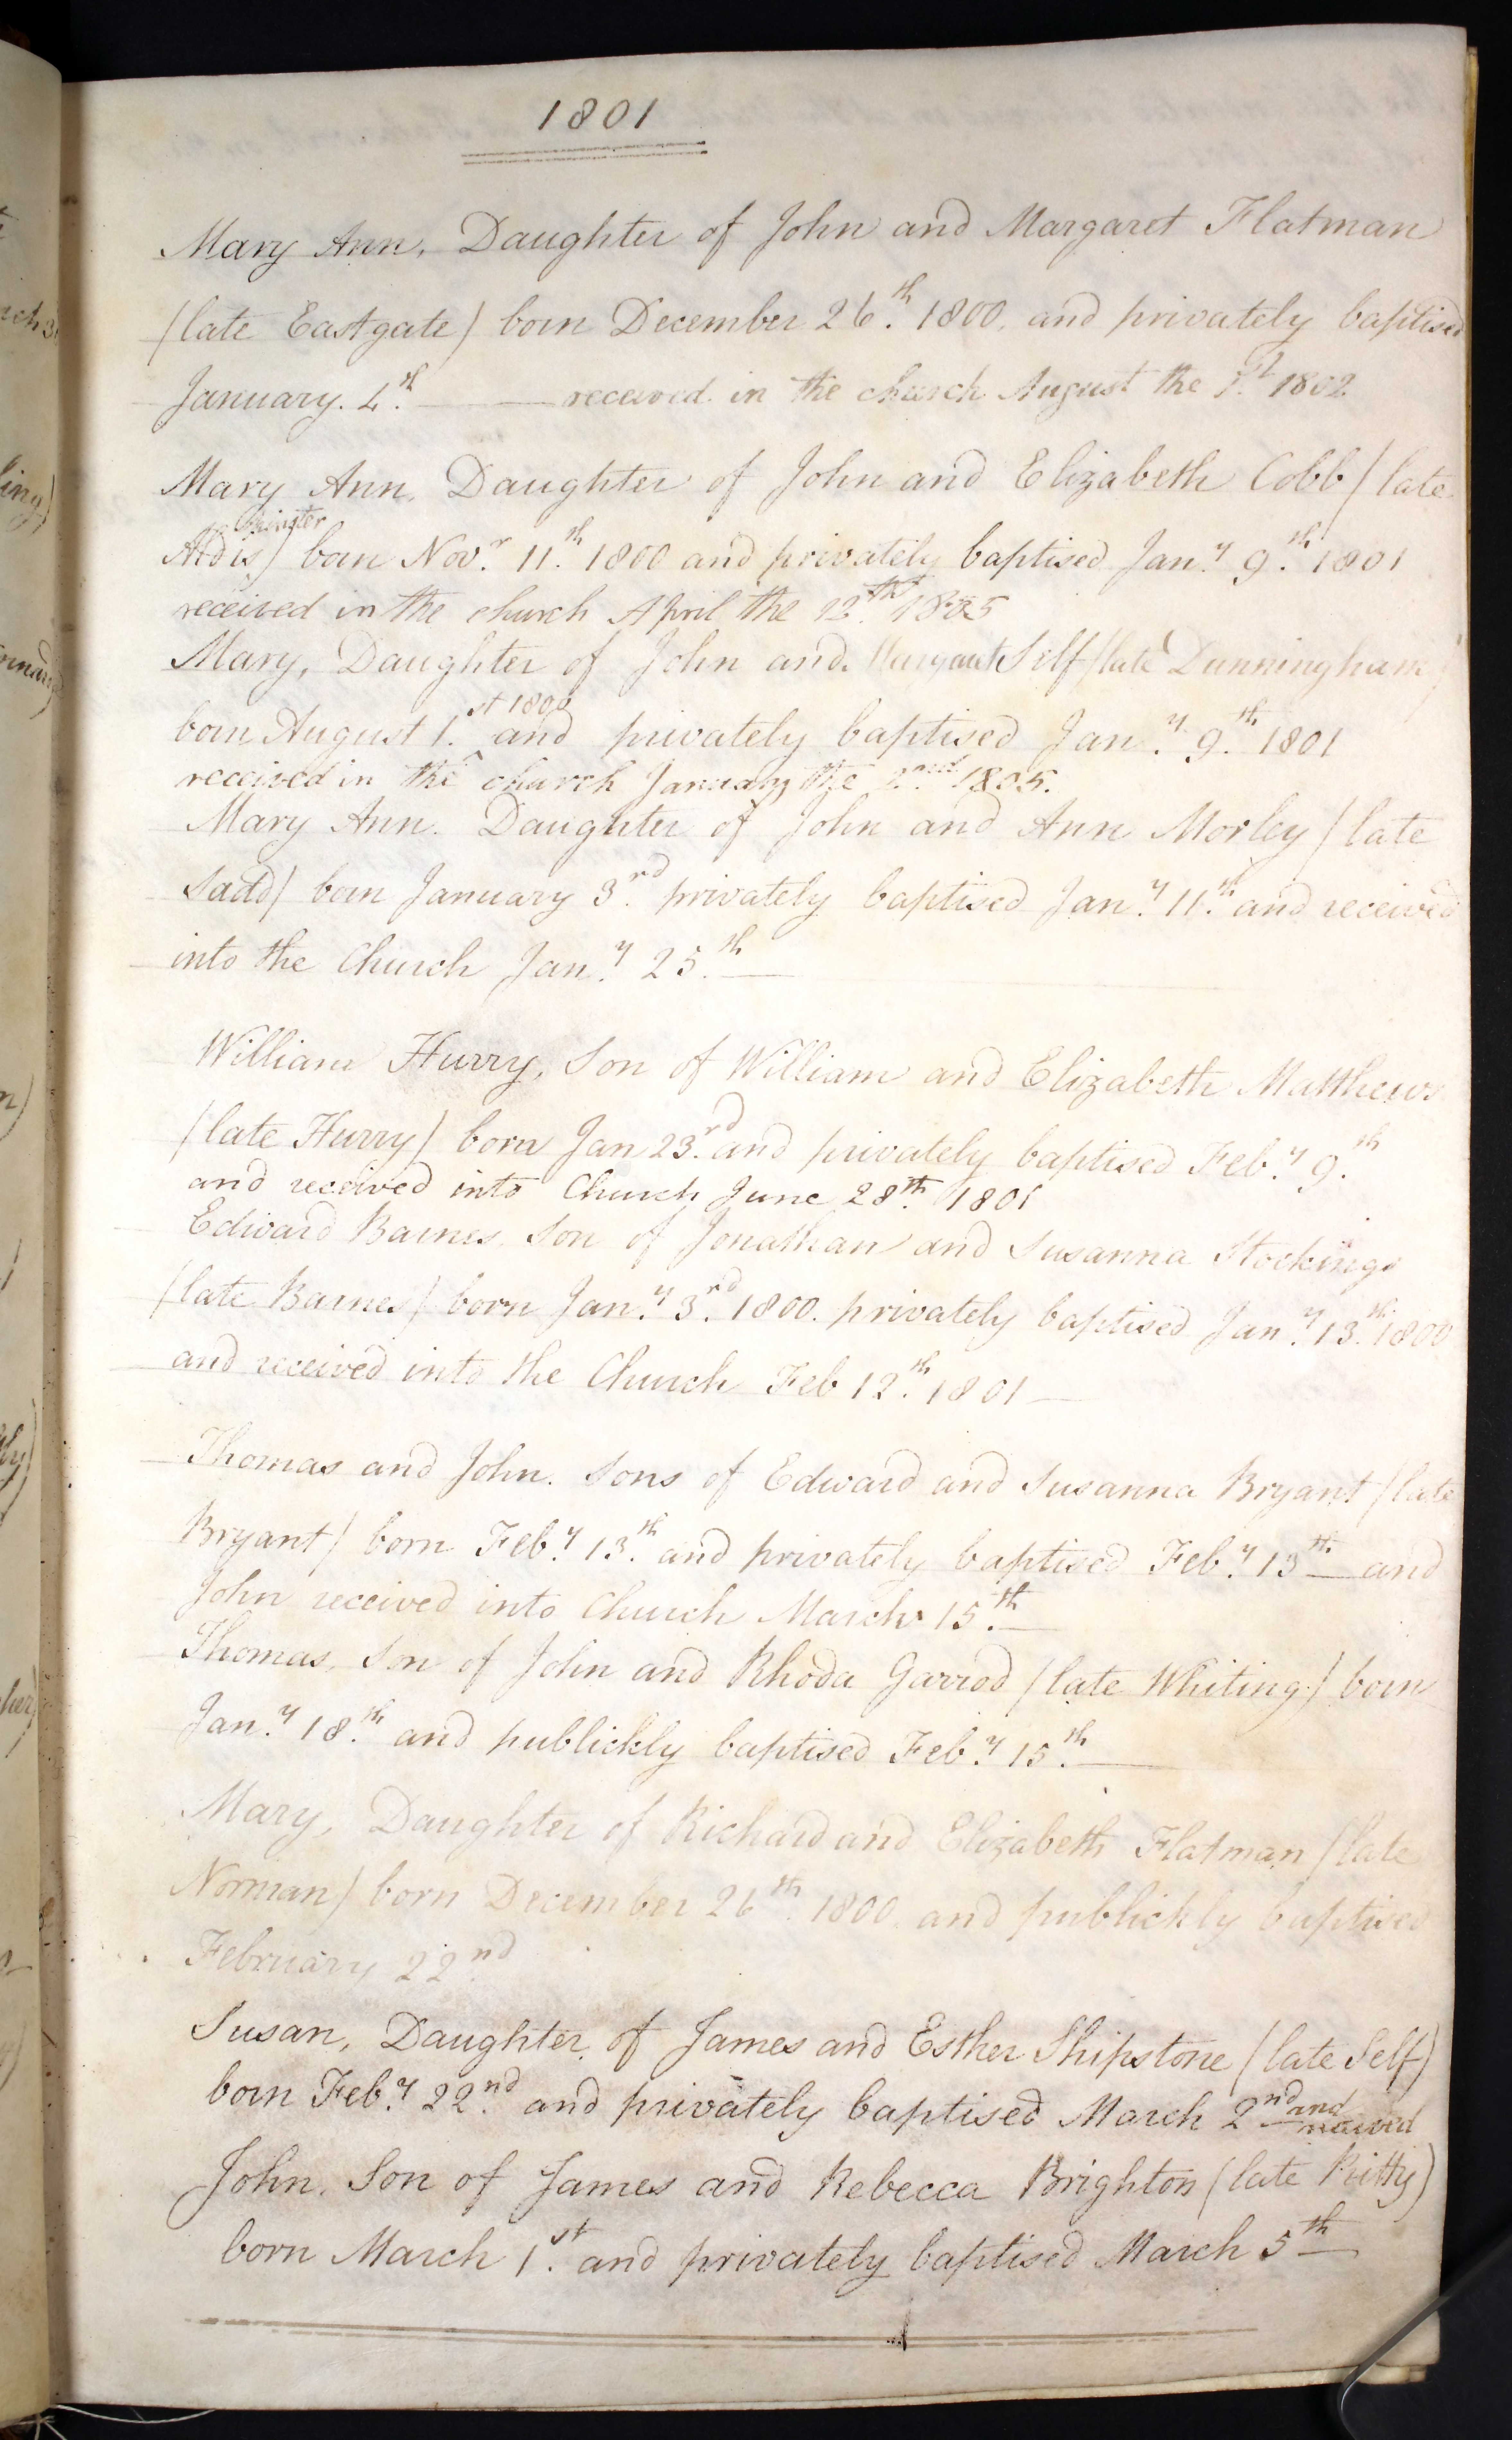 1801
Mary Ann, Daughter of John and Margaret Flatman
(late Eastgate) born December 26.th 1800. and privately baptised
January. 4.th received in the church August the 1.st 1802
Mary Ann, Daughter of John and Elizabeth Cobb (late
Aldis) born Nov.r 11.th 1800 and privately baptised Jan.y 9.th 1801
received in the church April the 12.th 1805
Mary, Daughter of John and Margaret Self (late Dunningham)
born August 1.st 1800 and privately baptised Jan.y 9.th 1801
received in the church January the 2.nd 1805.
Mary Ann. Daughter of John and Ann Morley (late
Sadd) born January 3.rd privately baptised Jan.y 11.th and received
into the Church Jan.y 25.th
William Hurry, Son of William and Elizabeth Matthews
(late Hurry) born Jan 23.rd and privately baptised Feb.y 9.th
and received into Church June 28.th 1801
Edward Barnes Son of Jonathan and Susanna Stockings
(late Barnes) born Jan.y 3.rd 1800. privately baptised Jan.y 13.th 1800
and received into the Church Feb 12.th 1801
Thomas and John. Sons of Edward and Susanna Bryant (late
Bryant) born Feb.y 13.th and privately baptised Feb.y 13th and
John received into Church March 15.th
Thomas, Son of John and Rhoda Garrod (late Whiting) born
Jan.y 18.th and publickly baptised Feb.y 15.th
Mary, Daughter of Richard and Elizabeth Flatman (late
Norman) born December 26th 1800 and publickly baptised
February 22.nd
Susan, Daughter of James and Esther Shipstone (late Self)
born Feb.y 22.nd and privately baptised March 2nd and received
John, Son of James and Rebecca Brighton (late Kitty)
born March 1.st and privately baptised March 5th